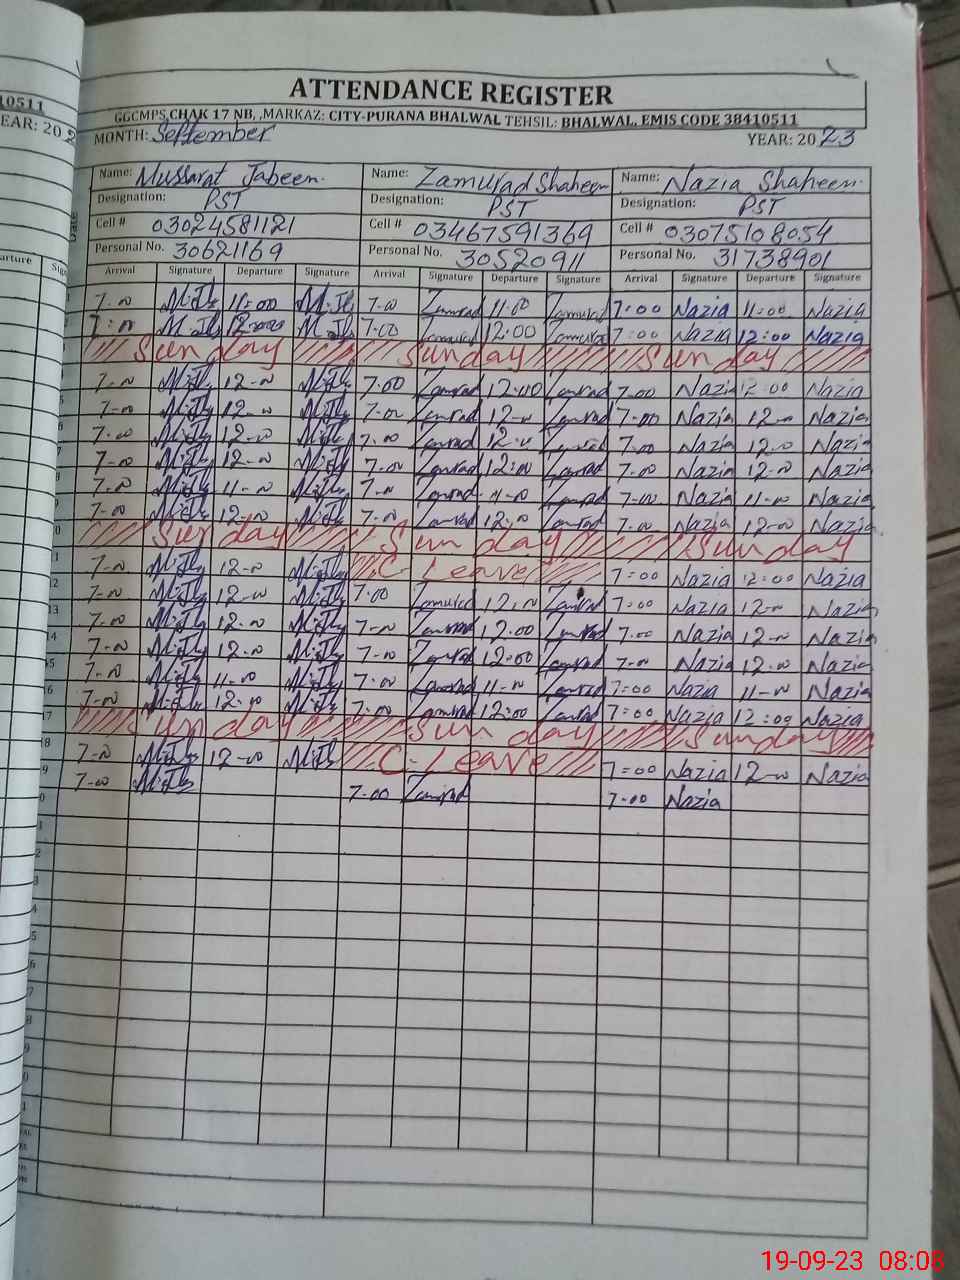 10511
EAR: 202
ATTENDANCE REGISTER
GGCMPS,CHAK 17 NB, ,MARKAZ: CITY-PURANA BHALWAL TEHSIL: BHALWAL, EMIS CODE 38410511
MONTH: September YEAR: 2023
Name: Mussarat Jabeen. Name: Zamurad Shaheen Name: Nazia Shaheen.
Designation: PST Designation: PST Designation: PST
Cell # 03024581121 Cell # 03467591369 Cell # 03075108054
Personal No. 30621169 Personal No. 30520911 Personal No. 31738901
Arrival Signature Departure Signature Arrival Signature Departure Signature Arrival Signature Departure Signature
7-00 11-00 7-00 Zamurad 11-00 Zamurad 7:00 Nazia 11-00 Nazia
7:00 12-00 7-00 Zamurad 12:00 Zamurad 7:00 Nazia 12:00 Nazia
Sunday Sunday Sunday
7-00 12-00 7.00 Zamurad 12:00 Zamurad 7.00 Nazia 12-00 Nazia
7-00 12-00 7-00 Zamurad 12-00 Zamurad 7-00 Nazia 12-00 Nazia
7-00 12-00 7-00 Zamurad 12-00 Zamurad 7-00 Nazia 12-00 Nazia
7-00 12-00 7-00 Zamurad 12:00 Zamurad 7-00 Nazia 12-00 Nazia
7-00 11-00 7-00 Zamurad 11-00 Zamurad 7-00 Nazia 11-00 Nazia
7-00 12-00 7-00 Zamurad 12-00 Zamurad 7-00 Nazia 12-00 Nazia
Sunday Sunday Sunday
7-00 12-00 C-Leave 7:00 Nazia 12:00 Nazia
7-00 12-00 7:00 Zamurad 12-00 Zamurad 7:00 Nazia 12-00 Nazia
7-00 12-00 7-00 Zamurad 12.00 Zamurad 7-00 Nazia 12-00 Nazia
7-00 12-00 7-00 Zamurad 12:00 Zamurad 7-00 Nazia 12-00 Nazia
7-00 11-00 7:00 Zamurad 11-00 Zamurad 7:00 Nazia 11-00 Nazia
7-00 12:00 7:00 Zamurad 12:00 Zamurad 7:00 Nazia 12:00 Nazia
Sunday Sunday Sunday
7-00 12-00 C-Leave 7:00 Nazia 12-00 Nazia
7-00 7-00 Zamurad 7-00 Nazia
19-09-23 08:08